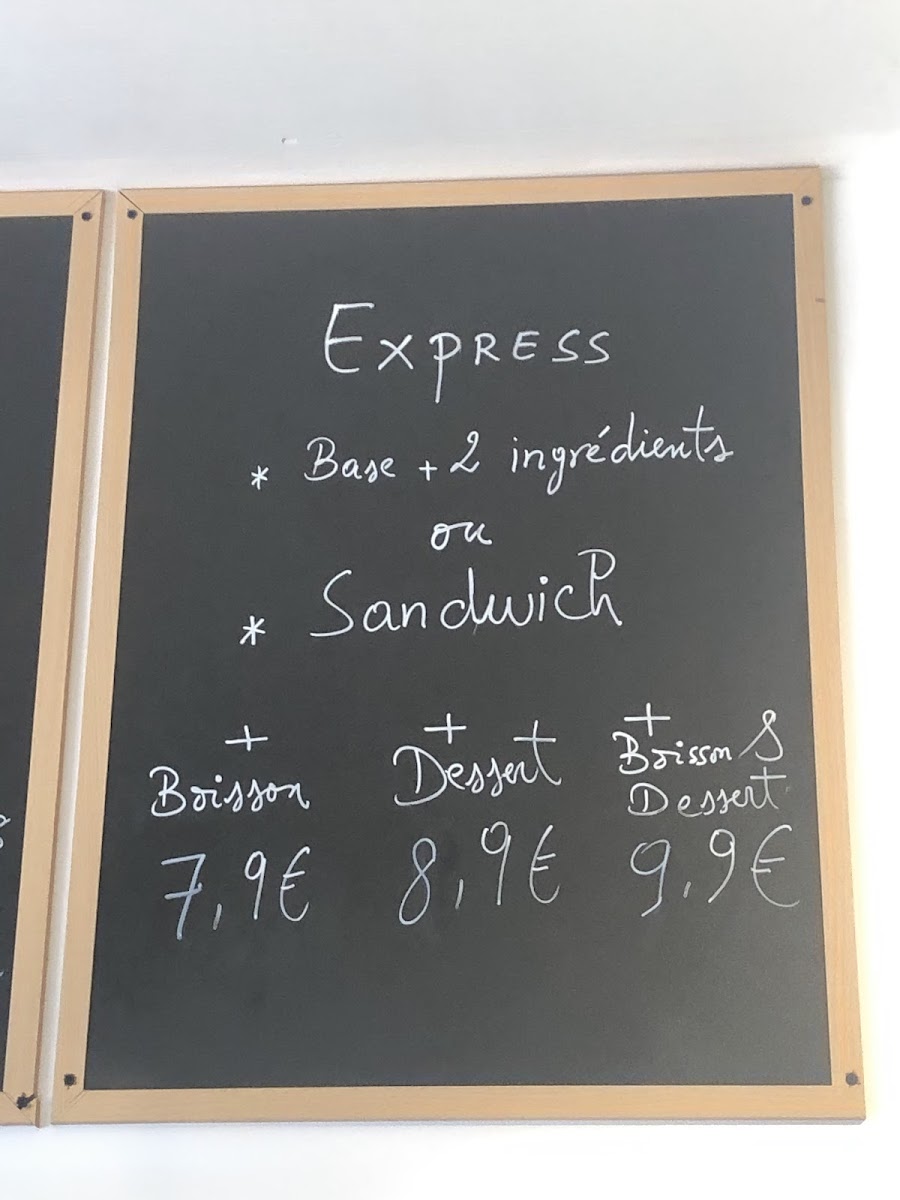 Express
* Base + 2 ingrédients
ou
* Sandwich
+ Boisson 7,9€
+ Dessert 8,9€
+ Boisson & Dessert 9,9€